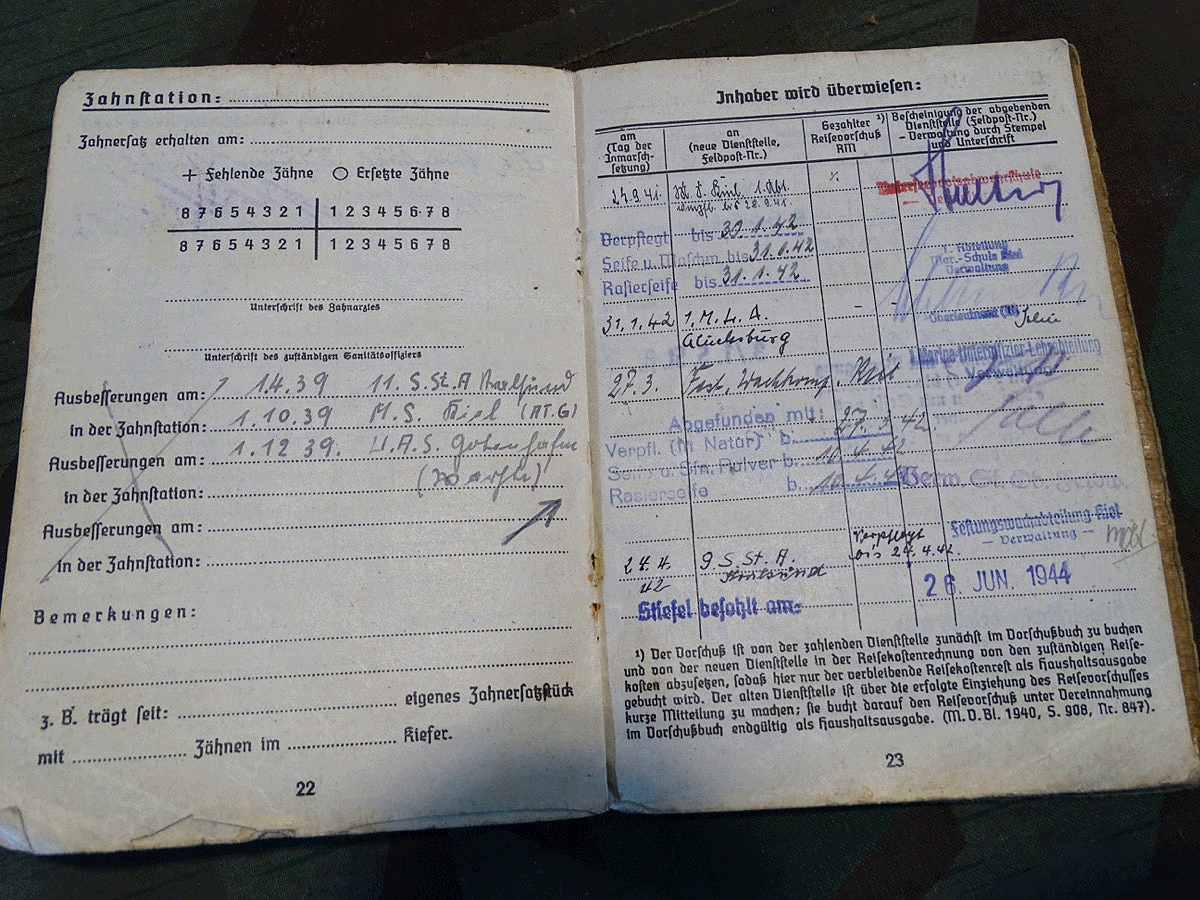 Zahnstation:
Zahnersatz erhalten am:
+ Fehlende Zähne O Ersetzte Zähne
8 7 6 5 4 3 2 1 1 2 3 4 5 6 7 8
8 7 6 5 4 3 2 1 1 2 3 4 5 6 7 8
Unterschrift des Zahnarztes
Unterschrift des zuständigen Sanitätsoffiziers
Ausbesserungen am: 1.4.39 11. S.St.A Stralsund
in der Zahnstation: 1.10.39 M.S. Kiel (AT.G)
Ausbesserungen am: 1.12 39. U.A.S. Gotenhafen
in der Zahnstation:
Ausbesserungen am:
in der Zahnstation:
Bemerkungen:
z. B. trägt seit: eigenes Zahnersatzstück
mit Zähnen im Kiefer.
22
Inhaber wird überwiesen:
am (Tag der Inmarsch-setzung)
an (neue Dienststelle, Feldpost-Nr.)
Gezahlter ¹) Reisevorschuß RM
Bescheinigung der abgebenden Dienststelle (Feldpost-Nr.) – Verwaltung durch Stempel und Unterschrift
Kiel 1. Abt.
Verpflegt bis 31.1.42
Seife u. Waschm. bis 31.1.42
Rasierseife bis 31.1.42
1. Abteilung
Mar.-Schule Kiel
Verwaltung
Oberleutnant (W)
31.1.42 1. M.L.A. –
Glücksburg
27.3. Fest. Wachkomp. Kiel
Verwaltung
Abgefunden mit:
Verpfl. (in Natur) b. 27.3.42.
b. 10.4.42
Rasierseife b. 10.4.42
24.4. 9 S.St.A. Verpflegt bis 24.4.42.
42 Stralsund
Festungswachabteilung Kiel
– Verwaltung –
Stiefel besohlt am: 26. JUN. 1944
¹) Der Vorschuß ist von der zahlenden Dienststelle zunächst im Vorschußbuch zu buchen
und von der neuen Dienststelle in der Reisekostenrechnung von den zuständigen Reise-
kosten abzusetzen, sodaß hier nur der verbleibende Reisekostenrest als Haushaltsausgabe
gebucht wird. Der alten Dienststelle ist über die erfolgte Einziehung des Reisevorschusses
kurze Mitteilung zu machen; sie bucht darauf den Reisevorschuß unter Vereinnahmung
im Vorschußbuch endgültig als Haushaltsausgabe. (M. D. Bl. 1940, S. 908, Nr. 847).
23